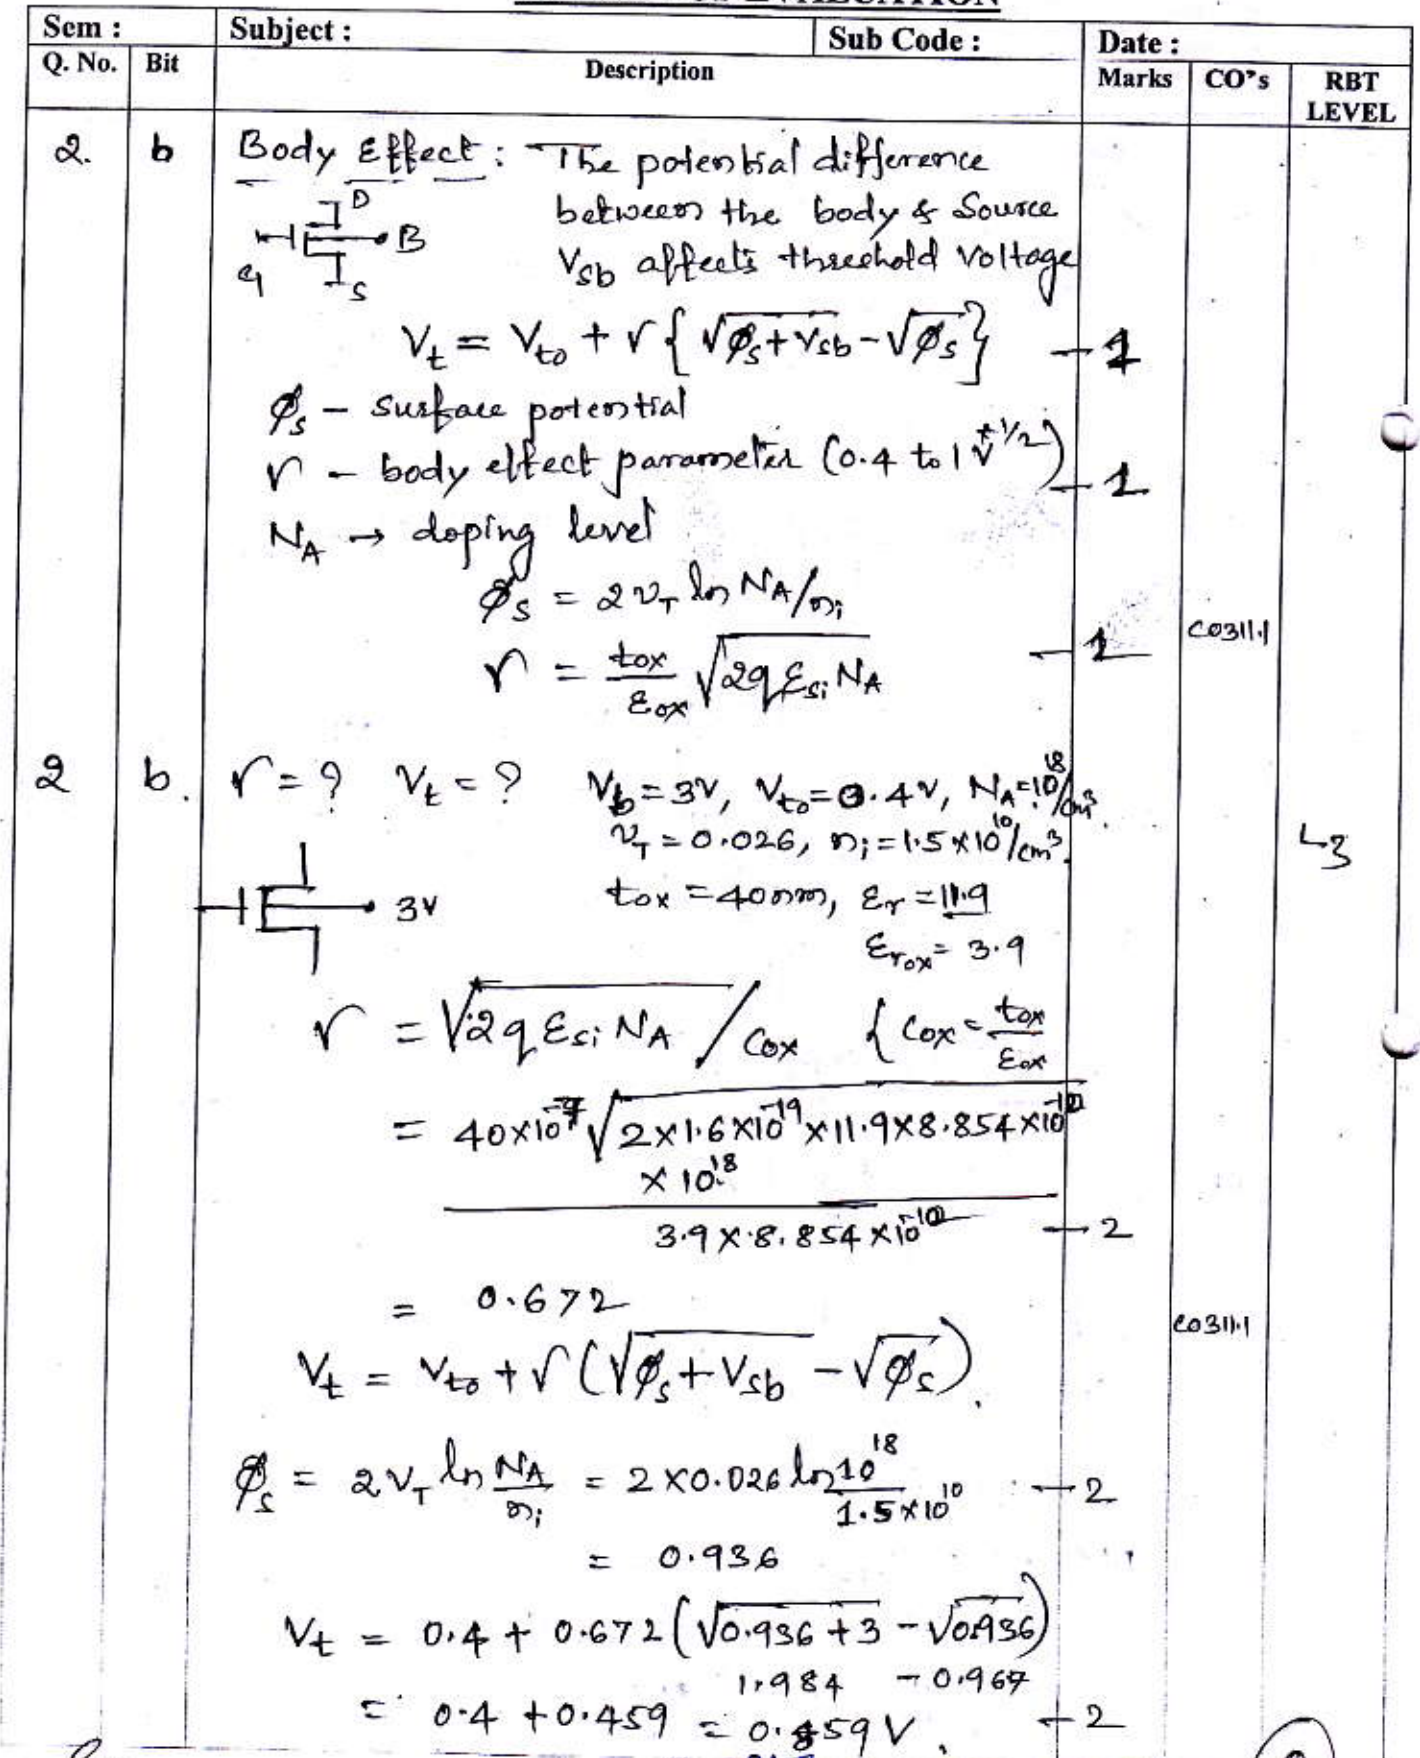 Sem :
Subject :
Sub Code :
Date :
Q. No.
Bit
Description
Marks
CO's
RBT LEVEL
2. b Body Effect : The potential difference
D
between the body & Source
B
Vsb affects threshold voltage
G
S
Vt = Vto + γ { √(φs + Vsb) - √φs } - 1
φs - surface potential
γ - body effect parameter (0.4 to 1 V^1/2) - 1
NA → doping level
φs = 2vT ln NA/ni
CO311.1
γ = tox/εox √(2qεsi NA) - 1
2 b. γ = ? Vt = ? Vb = 3V, Vto = 0.4V, NA = 10^18/cm^3.
vT = 0.026, ni = 1.5×10^10/cm^3.
L3
3V
tox = 40nm, εr = 11.9
εrox = 3.9
γ = √(2qεsi NA) / Cox { Cox = tox/εox
= 40×10^-7 √(2×1.6×10^-19×11.9×8.854×
×10^18
3.9×8.854× - 2
= 0.672
CO311.1
Vt = Vto + γ (√(φs + Vsb) - √φs).
φs = 2VT ln NA/ni = 2×0.026 ln 10^18/1.5×10^10 - 2
= 0.936
Vt = 0.4 + 0.672 (√(0.936+3) - √0.936)
1.984 - 0.967
= 0.4 + 0.459 = 0.859 V. - 2